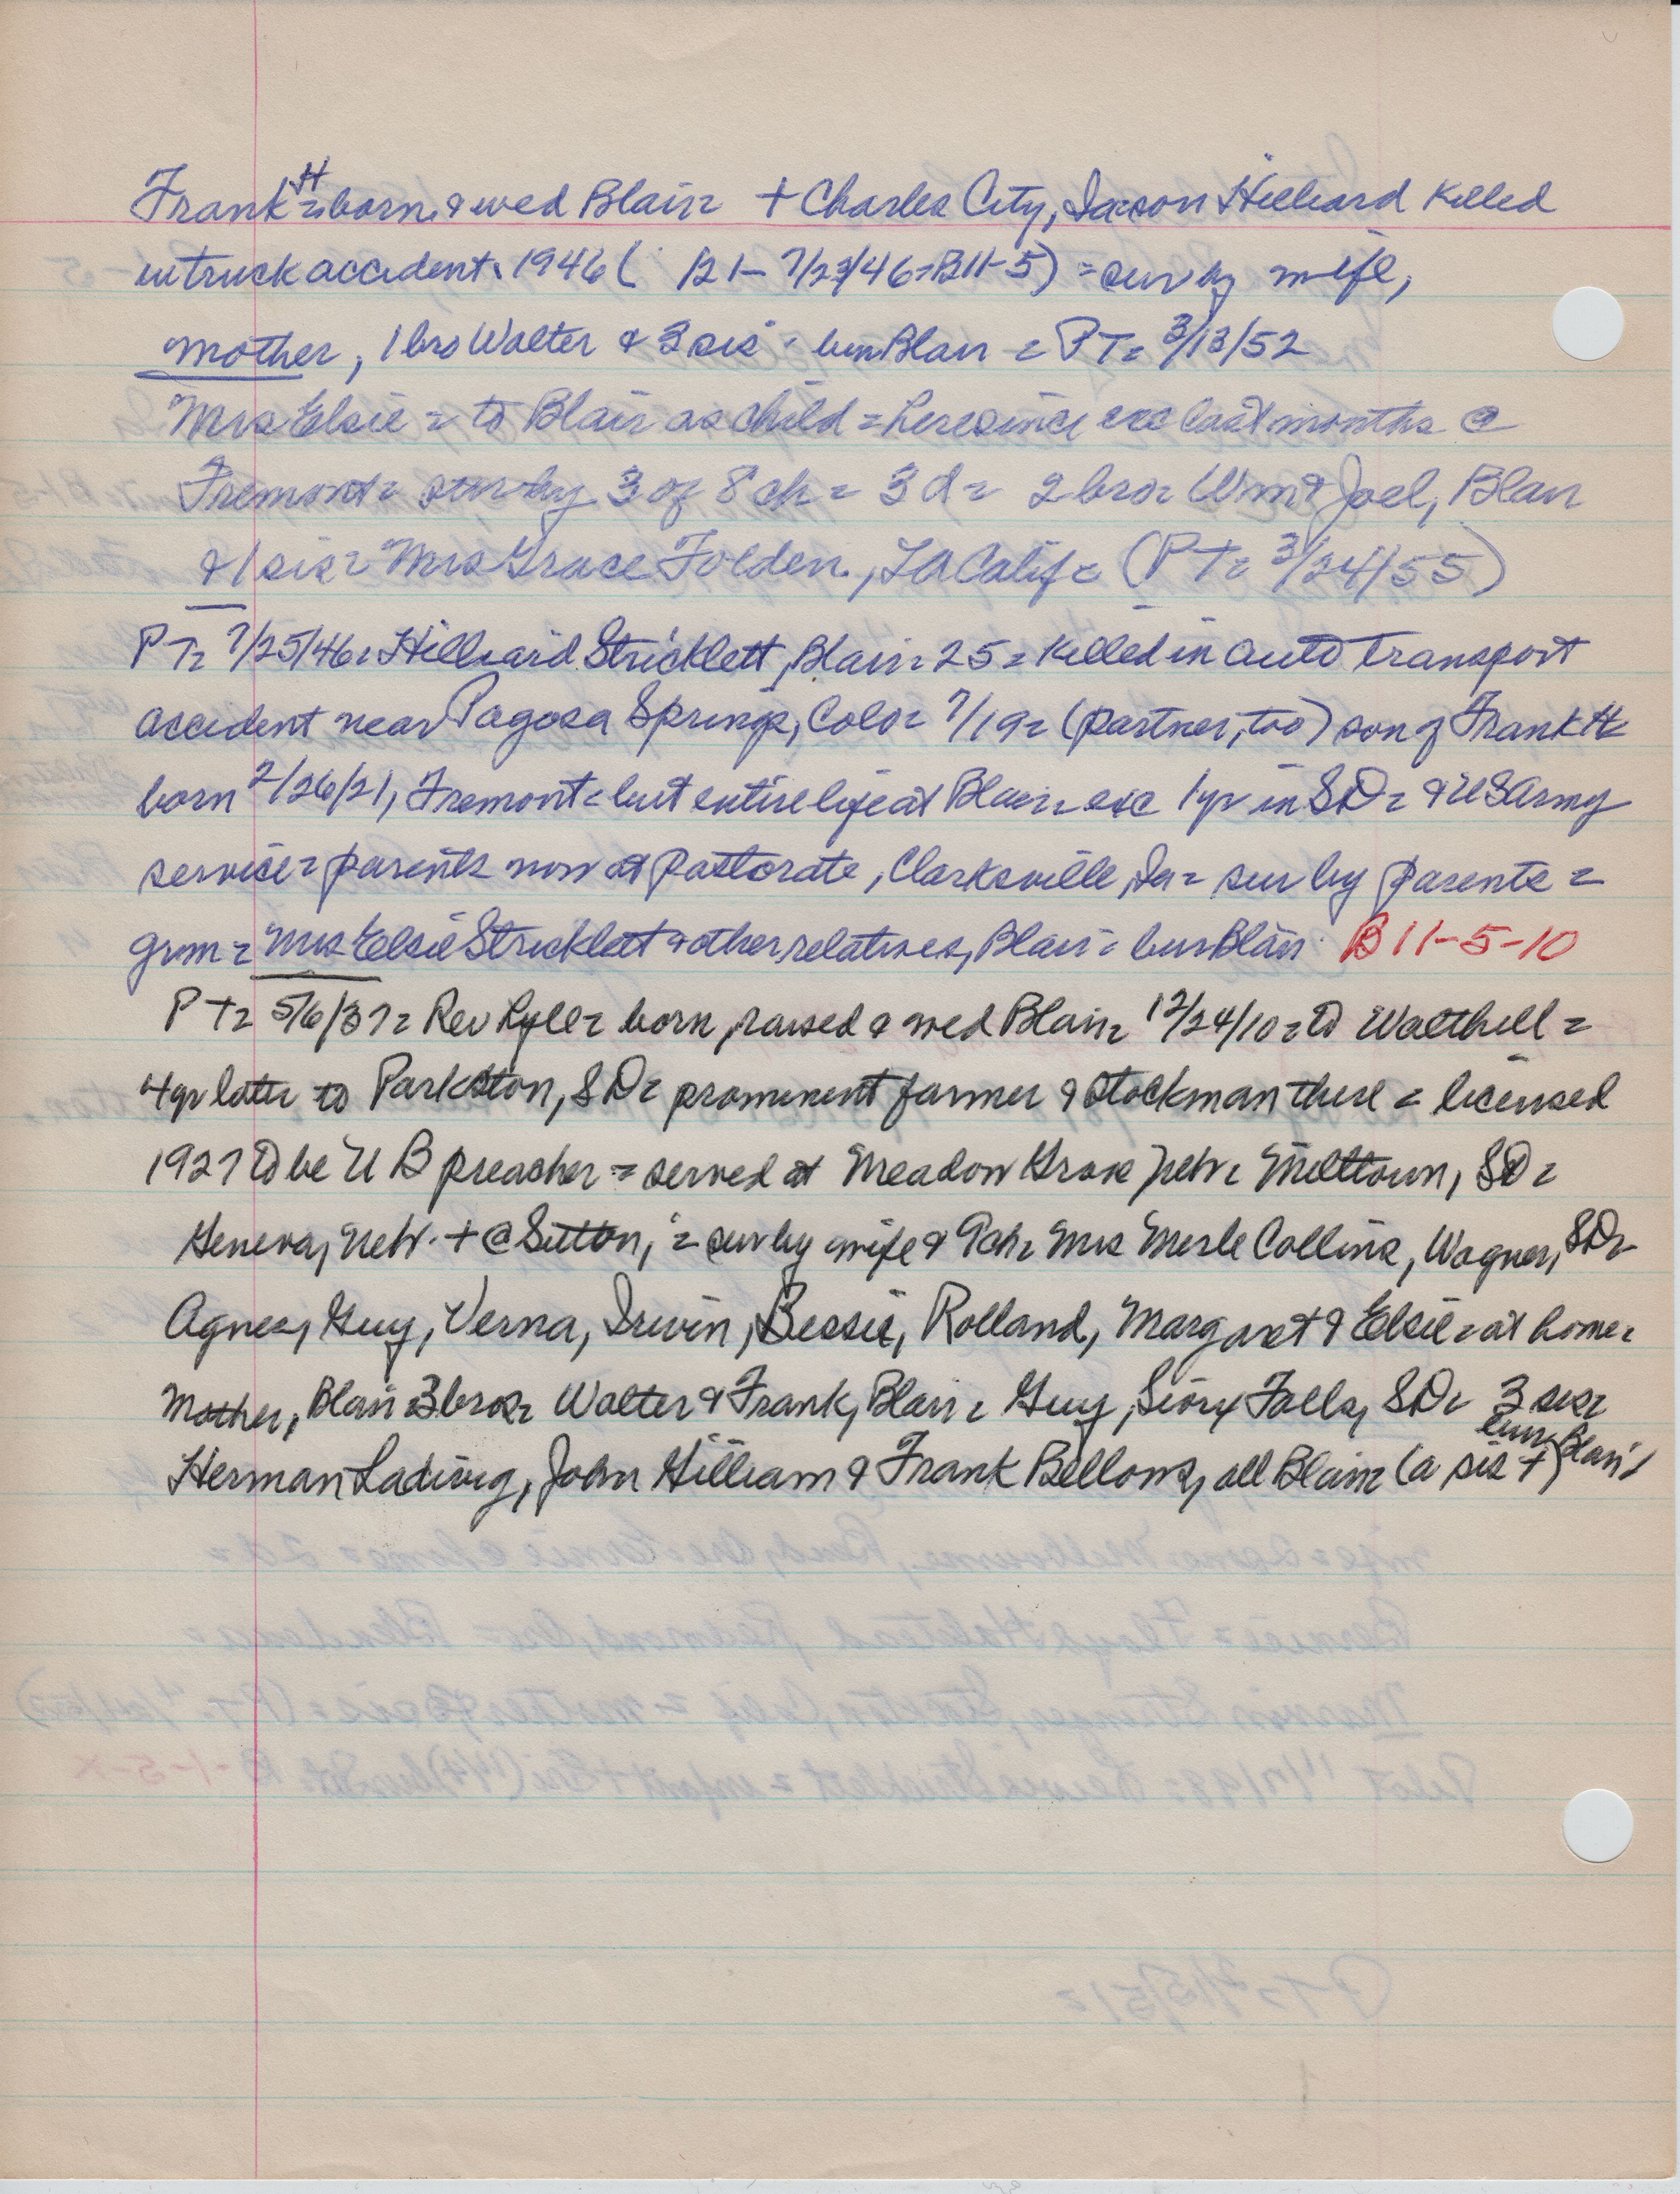 Frank H = born & wed Blair = + Charles City, Ia = son Hilliard killed
in truck accident 1946 ( 121 - 7/23/46 = B11-5) = sur by wife,
mother, 1 bro Walter & 3 sis = bur Blair = PT = 3/13/52
Mrs Elsie = to Blair as child = here since exc last months @
Fremont = sur by 3 of 8 ch = 3 d = 2 bro = Wm & Joel, Blair
& 1 sis = Mrs Grace Folden, LA Calif = (PT = 3/24/55)
PT = 7/25/46 = Hilliard Stricklett, Blair = 25 = killed in auto transport
accident near Pagosa Springs, Colo = 7/19 = (partner, too) son of Frank H =
born 2/26/21, Fremont = but entire life at Blair = exc 1 yr in SD = & US Army
service = parents now at pastorate, Clarksville, Ia = sur by parents =
grm = Mrs Elsie Stricklett & other relatives, Blair = bur Blair B11-5-10
PT = 5/6/37 = Rev Lyle = born, raised & wed Blair = 12/24/10 = to Walthill =
4 yr later to Parkston, SD = prominent farmer & stockman there = licensed
1927 to be U B preacher = served at Meadow Grove Neb = Milltown, SD =
Geneva, Neb. + @ Sutton, = sur by wife & 9 ch = Mrs Merle Collins, Wagner, SD =
Agnes, Guy, Verna, Irwin, Bessie, Rolland, Margaret & Elsie = at home =
Mother, Blair 3 bros = Walter & Frank, Blair = Guy, Sioux Falls, SD = 3 sis =
Herman Ladwig, John Gilliam & Frank Bellows, all Blair = (a sis +) bur Blair